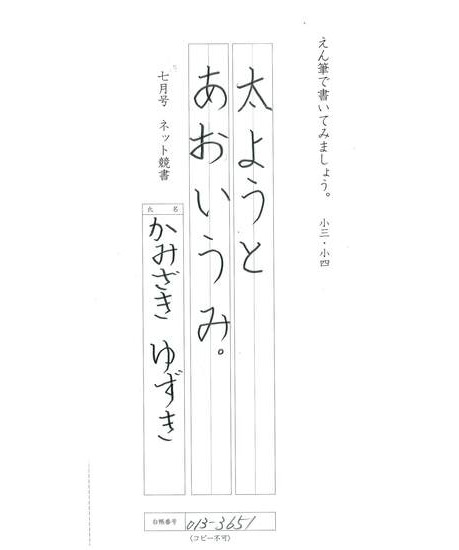 えん筆で書いてみましょう。 小三・小四
太ようと
あおいうみ。
七月号 ネット競書
氏名
かみざき ゆずき
台帳番号 013-3651
(コピー不可)